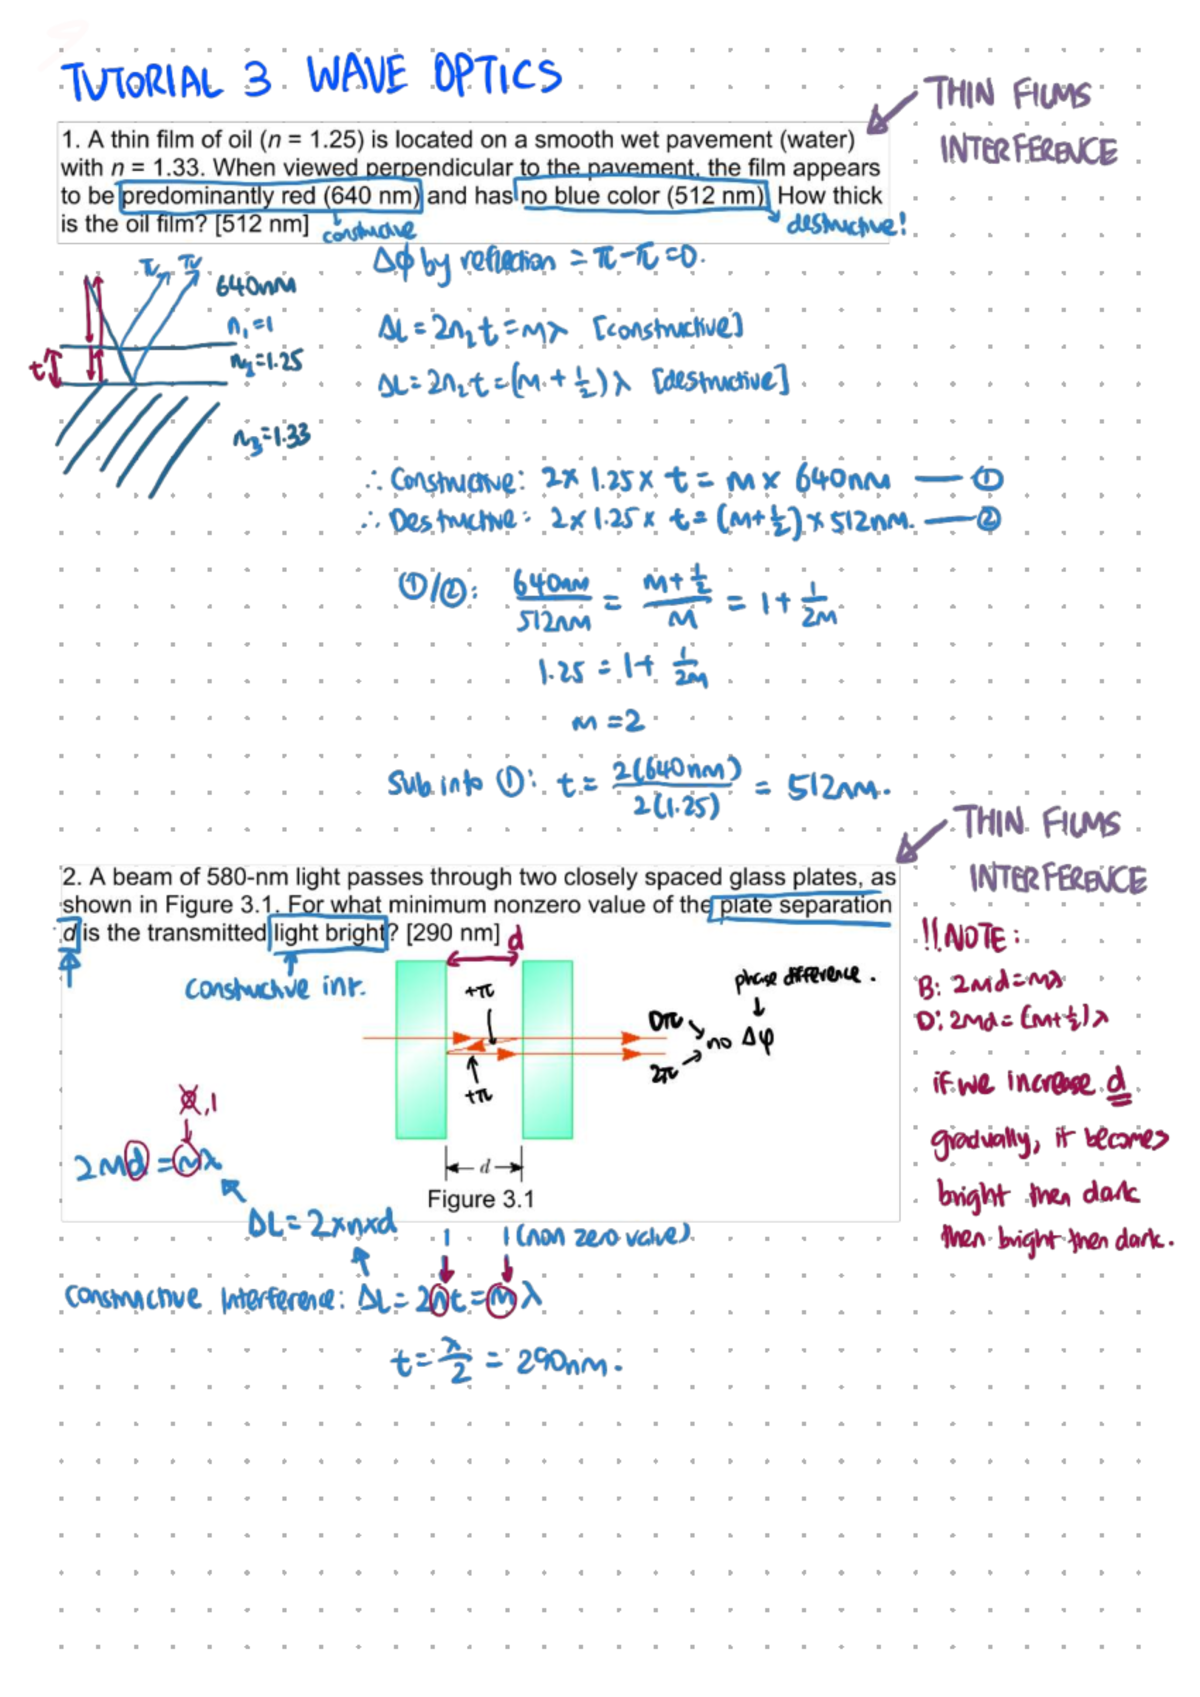 TUTORIAL 3. WAVE OPTICS
THIN FILMS
INTERFERENCE
1. A thin film of oil (n = 1.25) is located on a smooth wet pavement (water)
with n = 1.33. When viewed perpendicular to the pavement, the film appears
to be predominantly red (640 nm) and has no blue color (512 nm). How thick
is the oil film? [512 nm]
constructive
destructive!
Δϕ by reflection = π - π = 0.
π π
640nm
n₁ = 1
t
n₂ = 1.25
n₃ = 1.33
ΔL = 2n₂t = mλ [constructive]
ΔL = 2n₂t = (m + 1/2)λ [destructive]
∴ Constructive: 2 x 1.25 x t = m x 640nm — ①
∴ Destructive: 2 x 1.25 x t = (m + 1/2) x 512nm. — ②
①/②: 640nm/512nm = (m + 1/2)/m = 1 + 1/2m
1.25 = 1 + 1/2m
m = 2
Sub into ①: t = 2(640nm)/2(1.25) = 512nm.
THIN FILMS
INTERFERENCE
2. A beam of 580-nm light passes through two closely spaced glass plates, as
shown in Figure 3.1. For what minimum nonzero value of the plate separation
d is the transmitted light bright? [290 nm]
constructive int.
d
+π
+π
0π
2π
no Δφ
phase difference.
d
Figure 3.1
!! NOTE:
B: 2nd = mλ
D: 2nd = (m + 1/2)λ
if we increase d
gradually, it becomes
bright then dark
then bright then dark.
0, 1
2nd = mλ
ΔL = 2 x n x d
1 1 (non zero value)
Constructive Interference: ΔL = 2nt = mλ
t = λ/2 = 290nm.